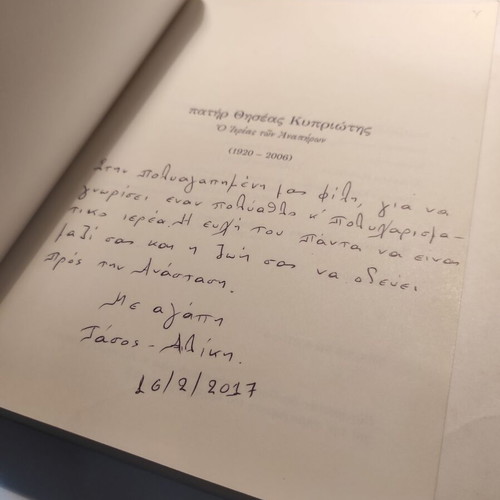 πατήρ Θησέας Κυπριώτης
Ὁ Ἱερέας τῶν Ἀναπήρων
(1920 – 2006)
Στην πολυαγαπημένη μας φίλη, για να
γνωρίσει εναν πολύαθλο κ' πολυχαρισμα-
τικο ιερέα. Η ευχή του πάντα να ειναι
μαζί σας και η ζωή σας να οδεύει
πρός την Ανάσταση.
Με αγάπη
Τάσος - Αλίκη.
16/2/2017